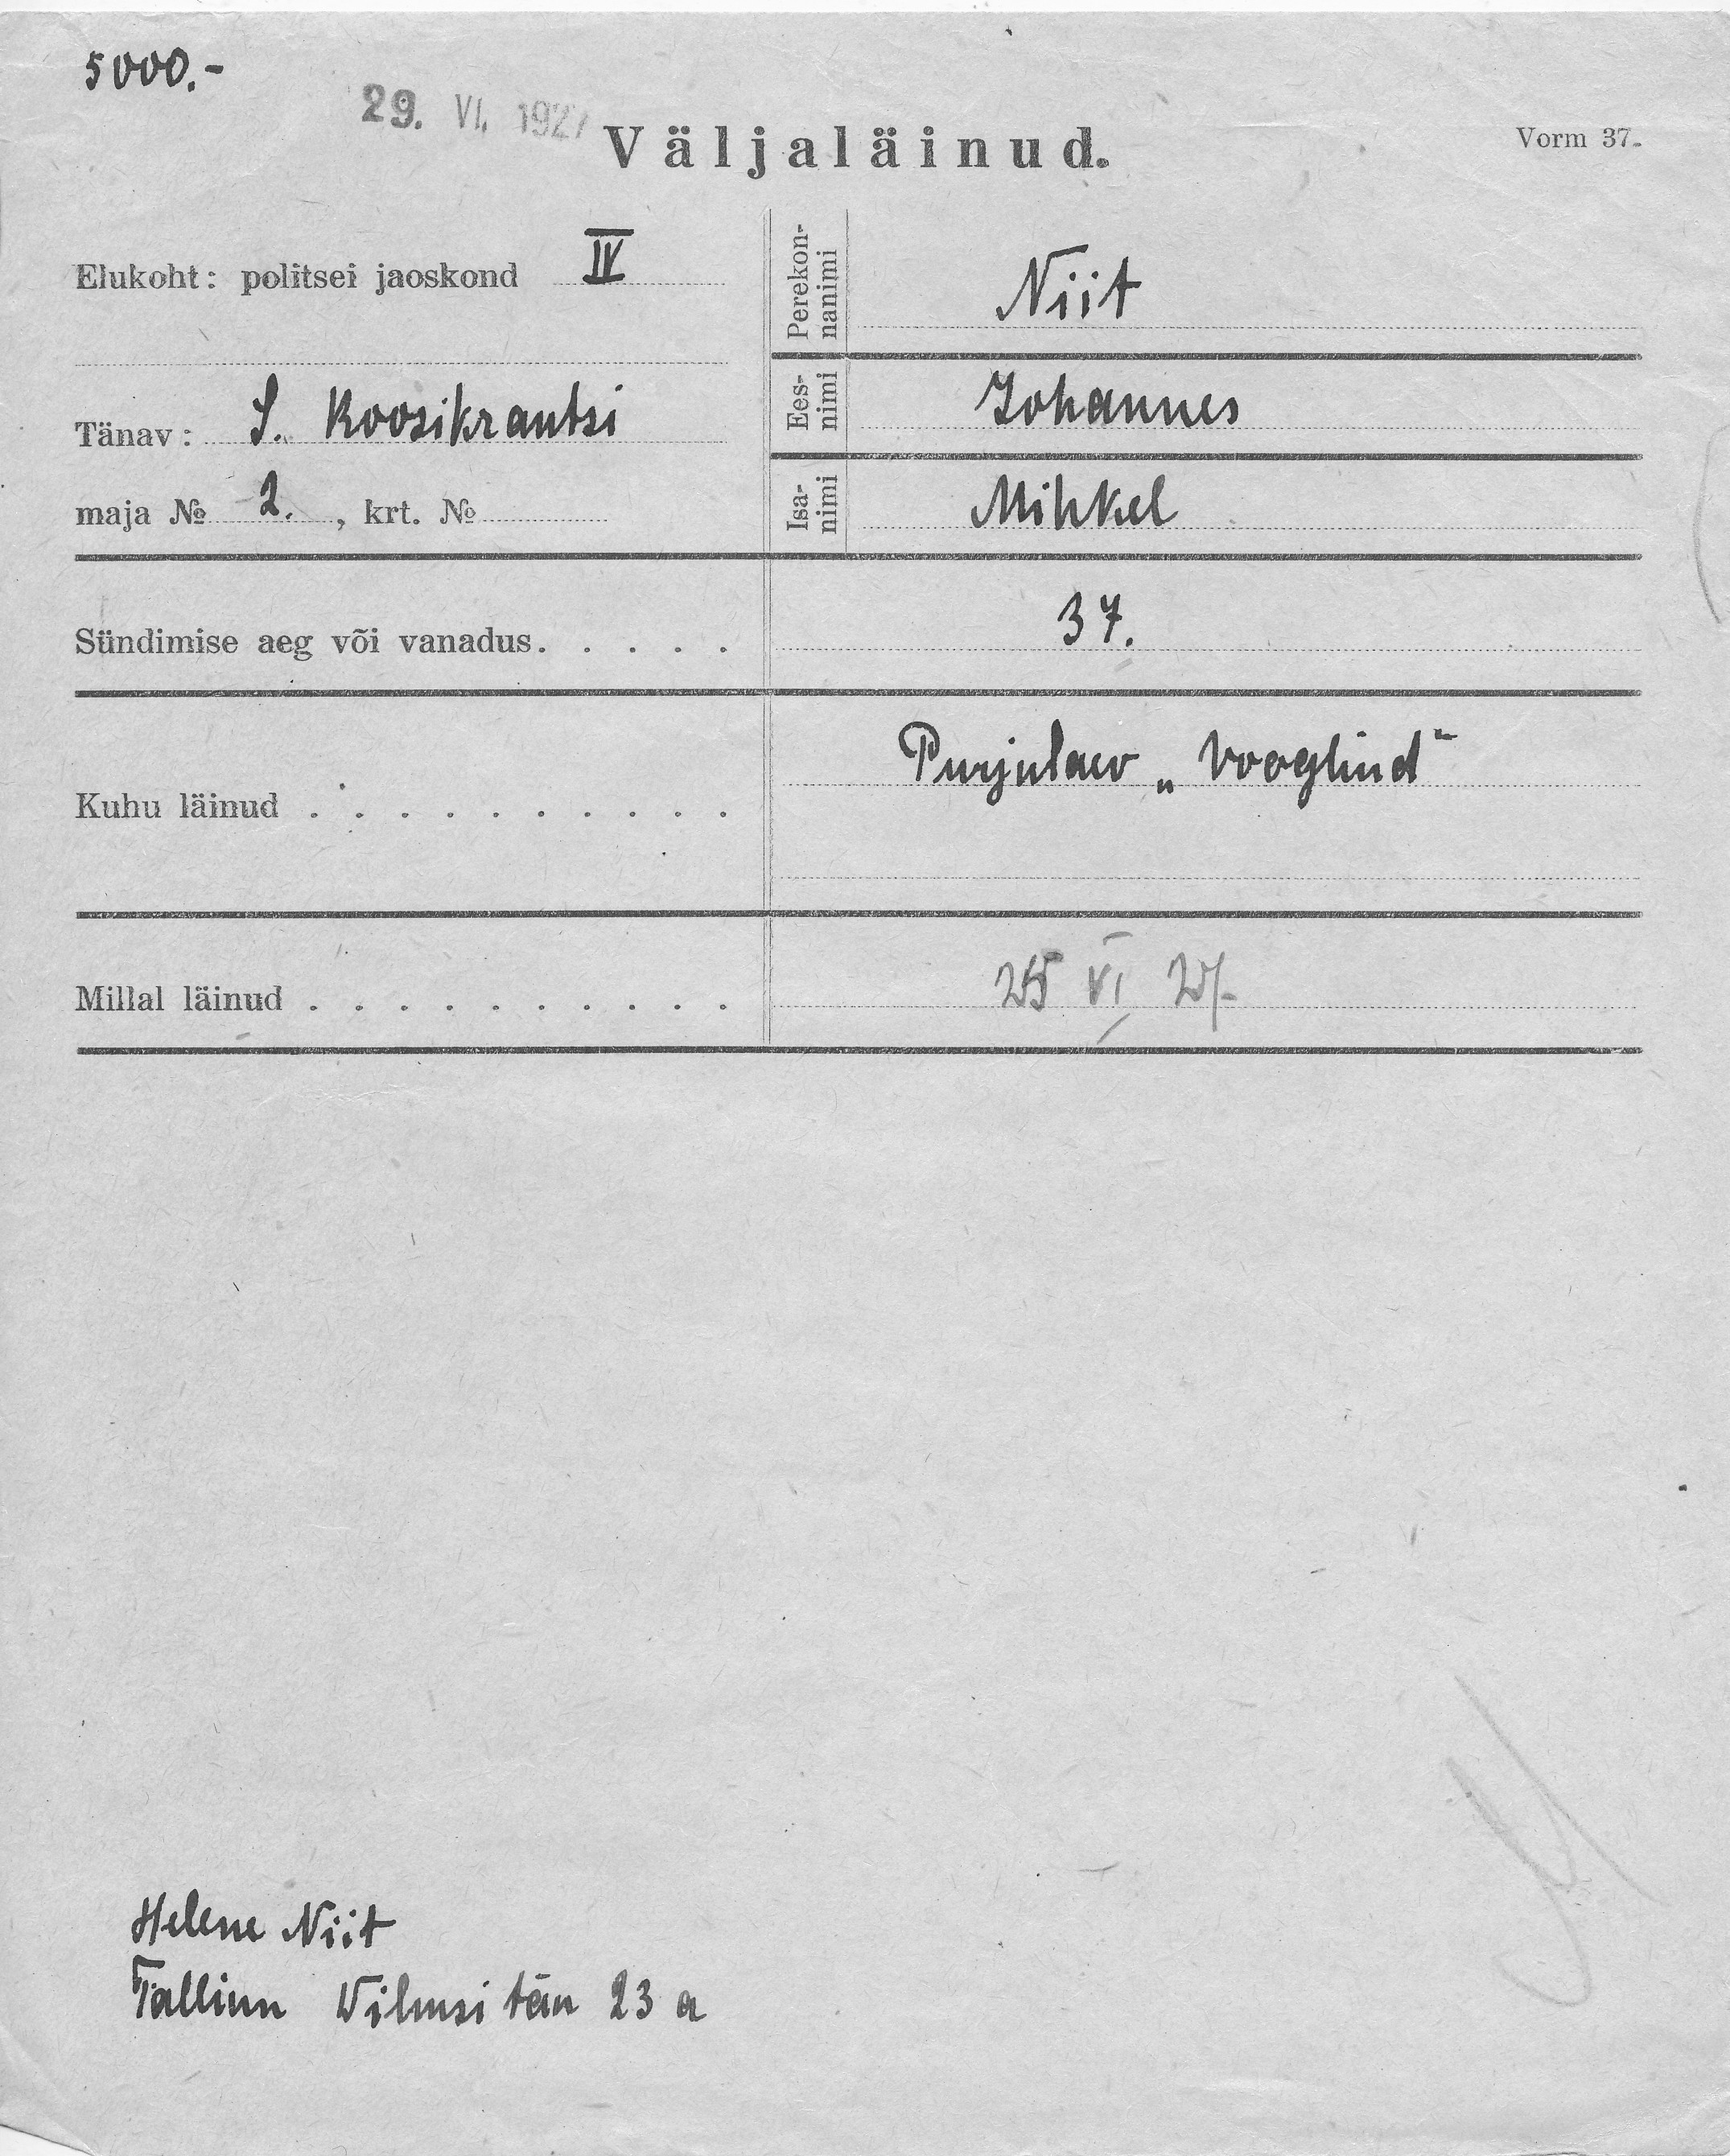 5000.-
29. VI. 1927
Väljaläinud.
Vorm 37.
Elukoht: politsei jaoskond IV
Tänav: S. Roosikrantsi
maja № 2., krt. №
Perekon-
nanimi
Niit
Ees-
nimi
Johannes
Isa-
nimi
Mihkel
Sündimise aeg või vanadus. . . . . 37.
Kuhu läinud . . . . . . . . . . Purjulaev „Vooglind"
Millal läinud . . . . . . . . . . 25 VI 27.
Helene Niit
Tallinn Wilmsi tän 23 a